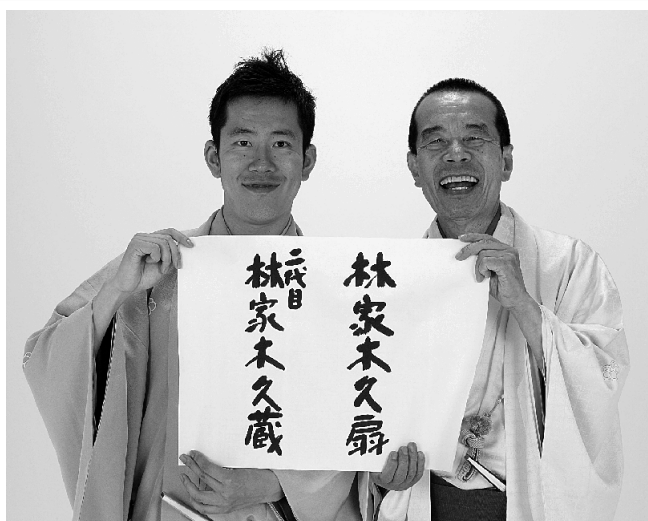 林家木久扇
二代目
林家木久蔵